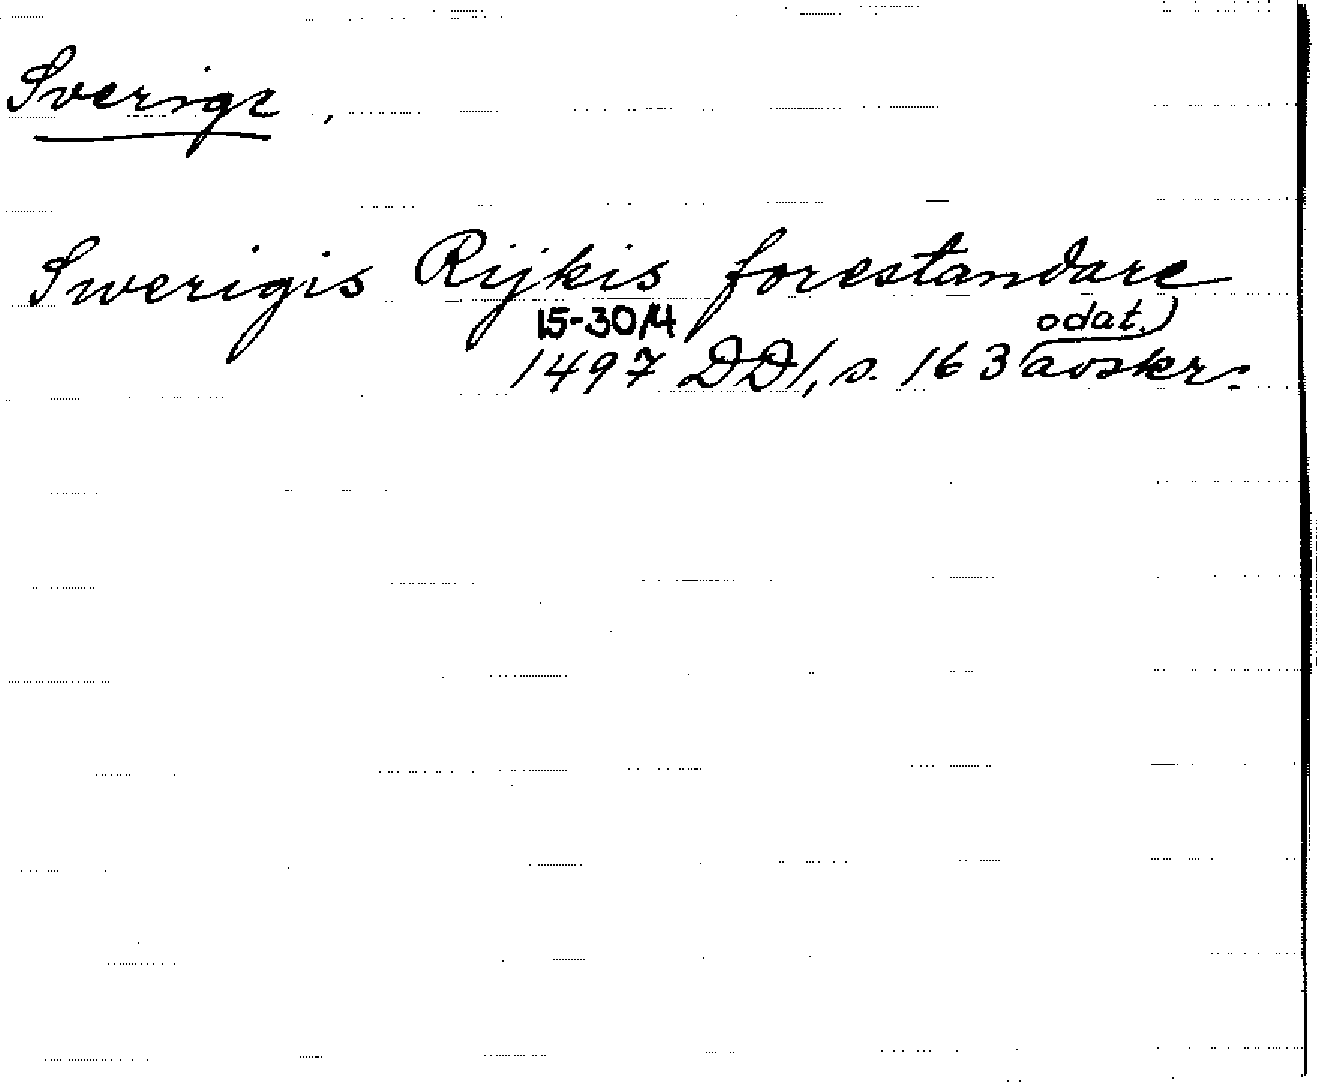 Sverige,
Swerigis Rijkis forestandare
15-30/4 odat.)
1497 DD1, s. 163 avskr.